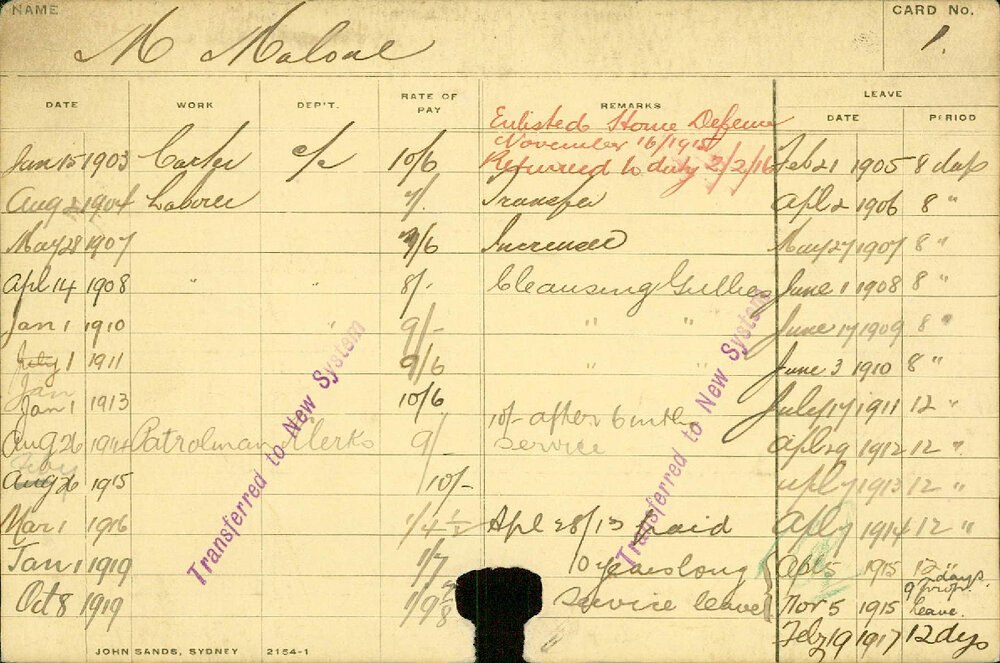 NAME
M Malone
CARD No.
1.
DATE WORK DEP'T. RATE OF PAY REMARKS LEAVE
DATE PERIOD
Enlisted Home Defence
November 16/1915
Returned to duty 2/2/16
Jan 15 1903 Carter c/c 10/6 Feb 21 1905 8 days
Aug 2 1904 Laborer 7/. Transfer Apl 2 1906 8 "
May 28 1907 7/6 Increase May 27 1907 8 "
Apl 14 1908 " " 8/- Cleansing Gullies June 1 1908 8 "
Jan 1 1910 " 9/- " " June 17 1909 8 "
July 1 1911 9/6 " " June 3 1910 8 "
Jan
Jan 1 1913 10/6 July 17 1911 12 "
10/- after 6 mths
Aug 26 1914 Patrolman Clerks 9/- service Apl 29 1912 12 "
Aug 26 1915 10/- Apl 7 1913 12 "
Mar 1 1916 1/4 1/2 Apl 28/13 paid Apl 7 1914 12 "
Jan 1 1919 1/7 10 years long Apl 5 1915 12 "
Oct 8 1919 service leave Nov 5 1915 9 days prop. leave.
Feby 19 1917 12 dys
Transferred to New System
Transferred to New System
JOHN SANDS, SYDNEY 2154-1